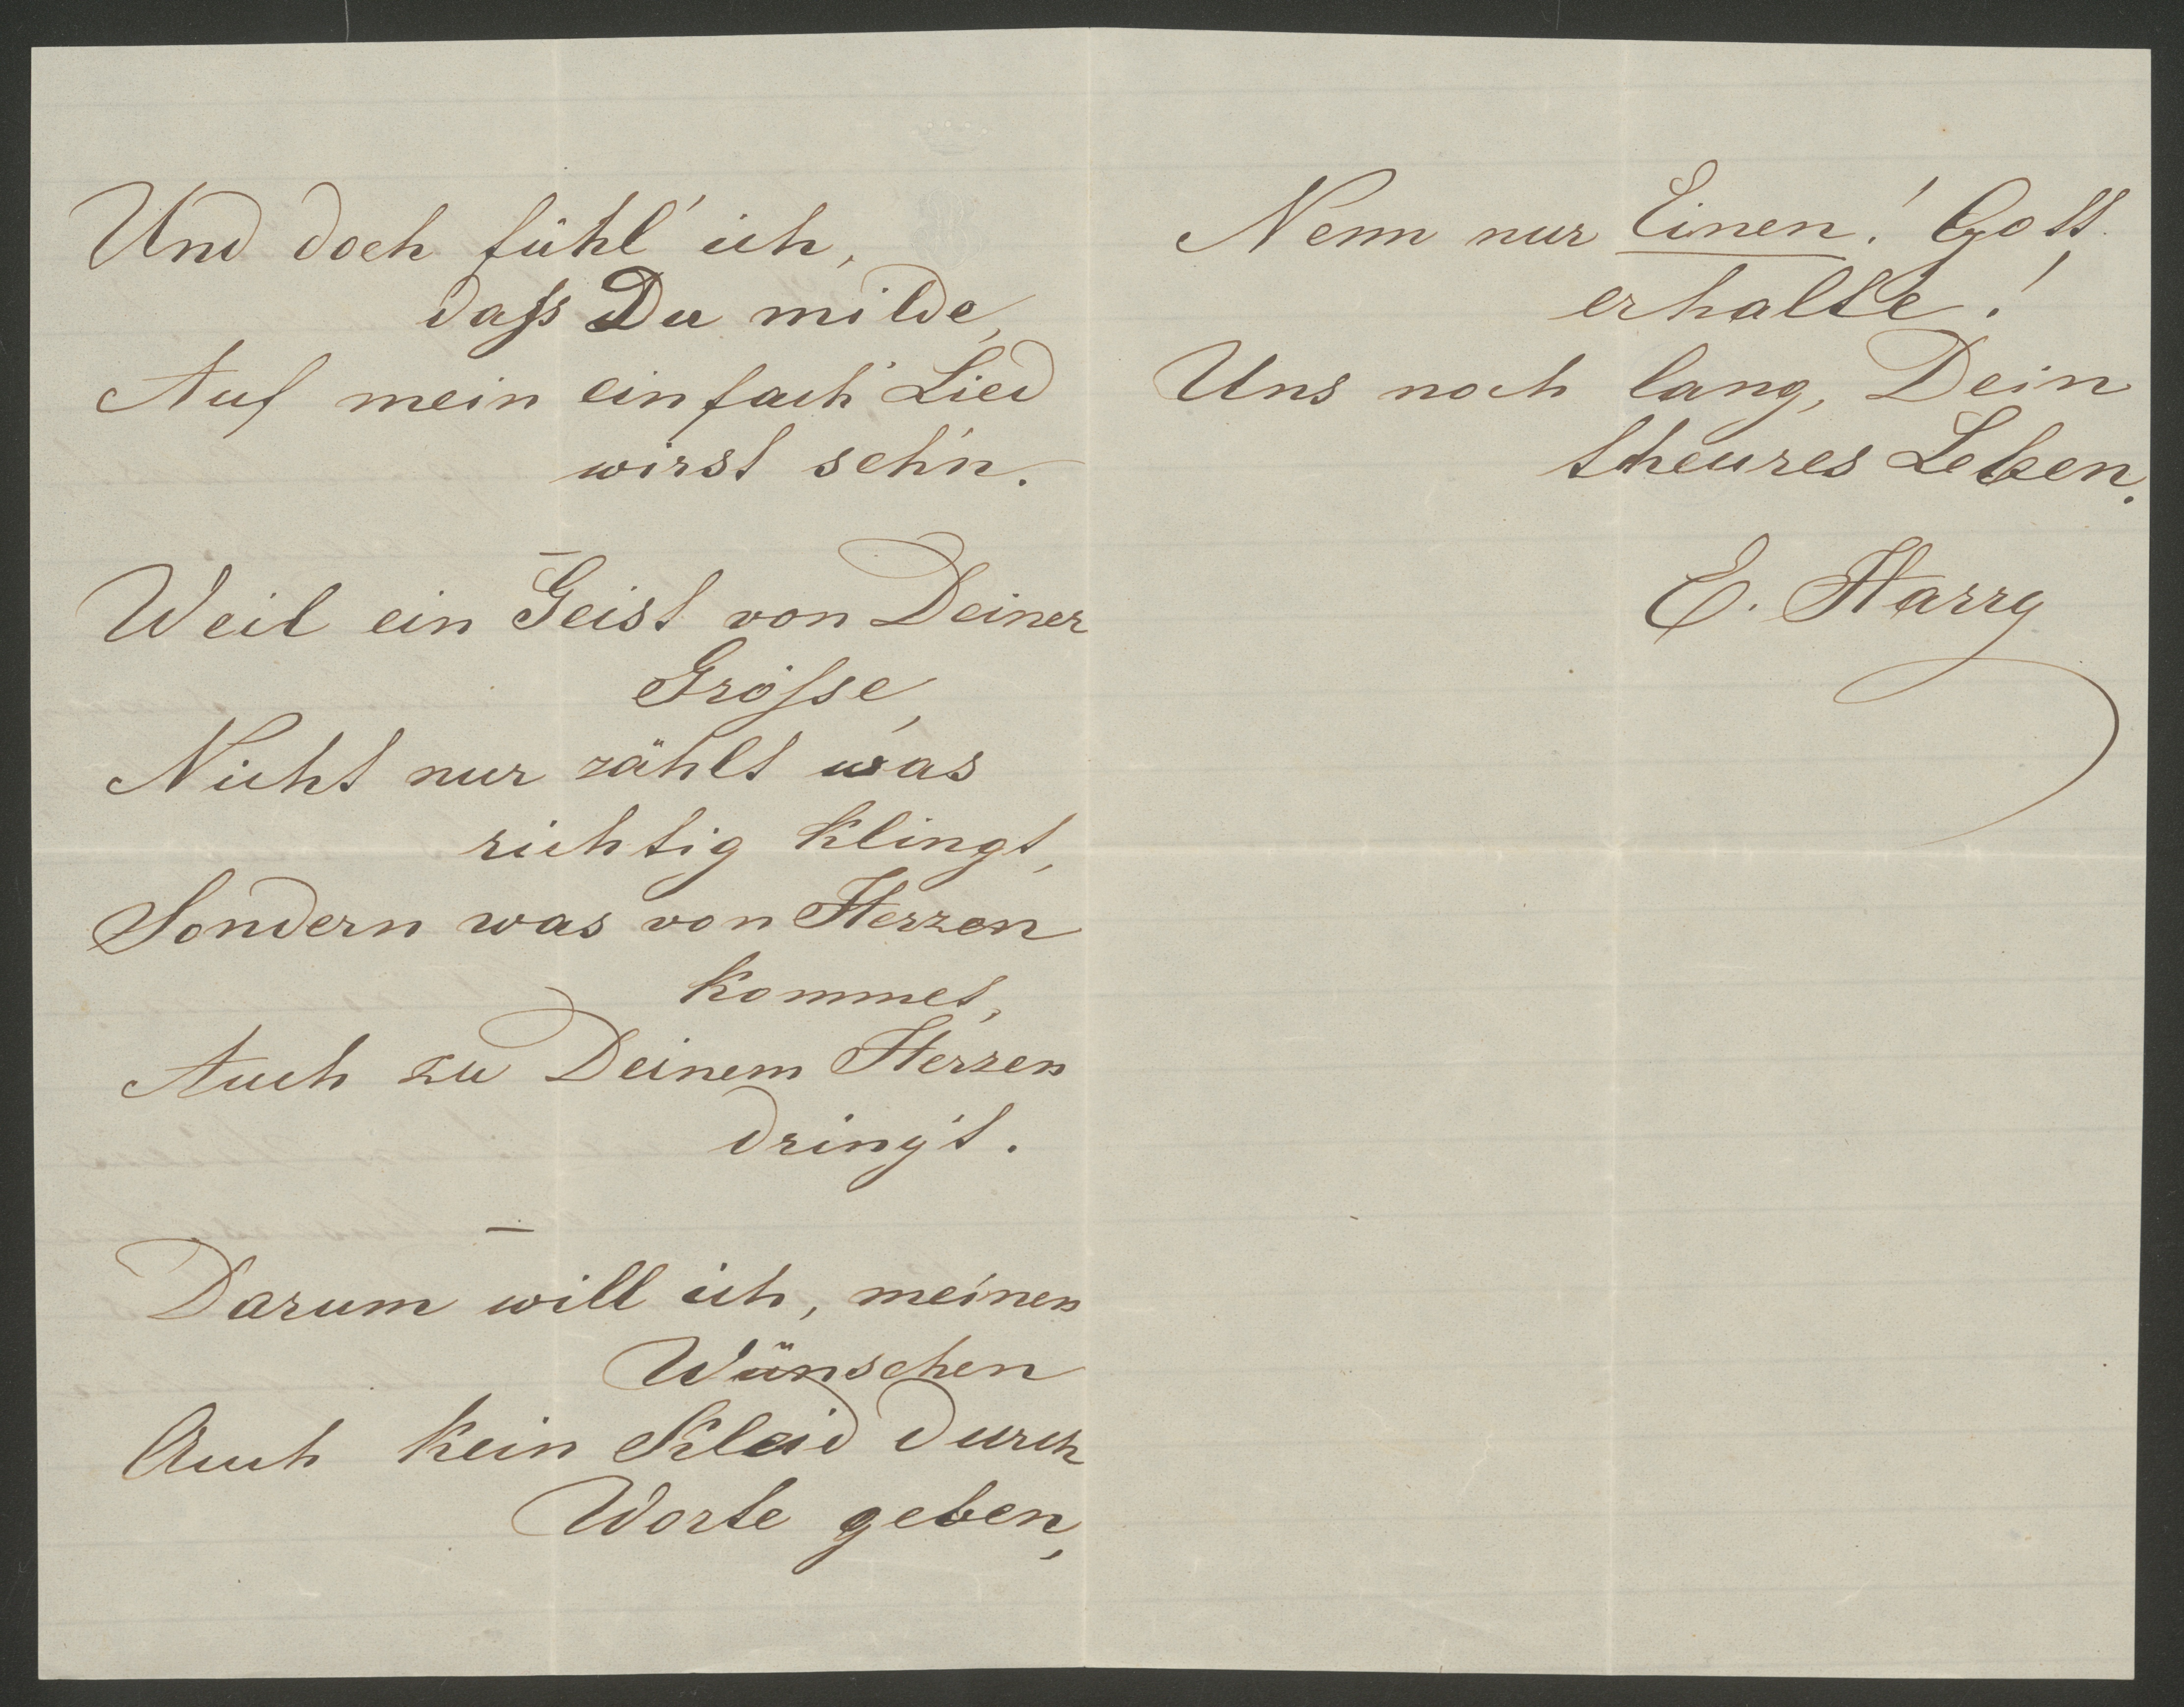 Und doch fühl' ich,
dass Du milde,
Auf mein einfach' Lied
wirst seh'n.
–
Weil ein Geist von Deiner
Grösse,
Nicht nur zählt was
richtig klingt,
Sondern was von Herzen
kommet,
Auch zu Deinem Herzen
dring't.
–
Darum will ich, meinen
Wünschen
Auch kein Kleid durch
Worte geben,
Nenn nur Einen! Gott
erhalte!
Uns noch lang, Dein
theures Leben.
E. Harry